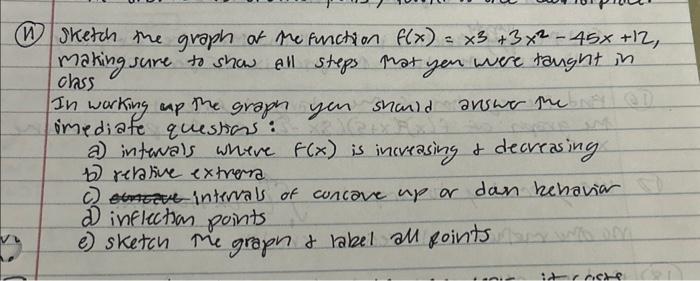 (11) Sketch the graph of the function f(x) = x3 + 3x² - 45x + 12,
making sure to show all steps that you were taught in
class
In working up the graph you should answer the
imediate questions :
a) intervals where f(x) is increasing & decreasing
b) relative extrema
c) intervals of concave up or down behavior
d) inflection points
e) sketch the graph & label all points
it costs